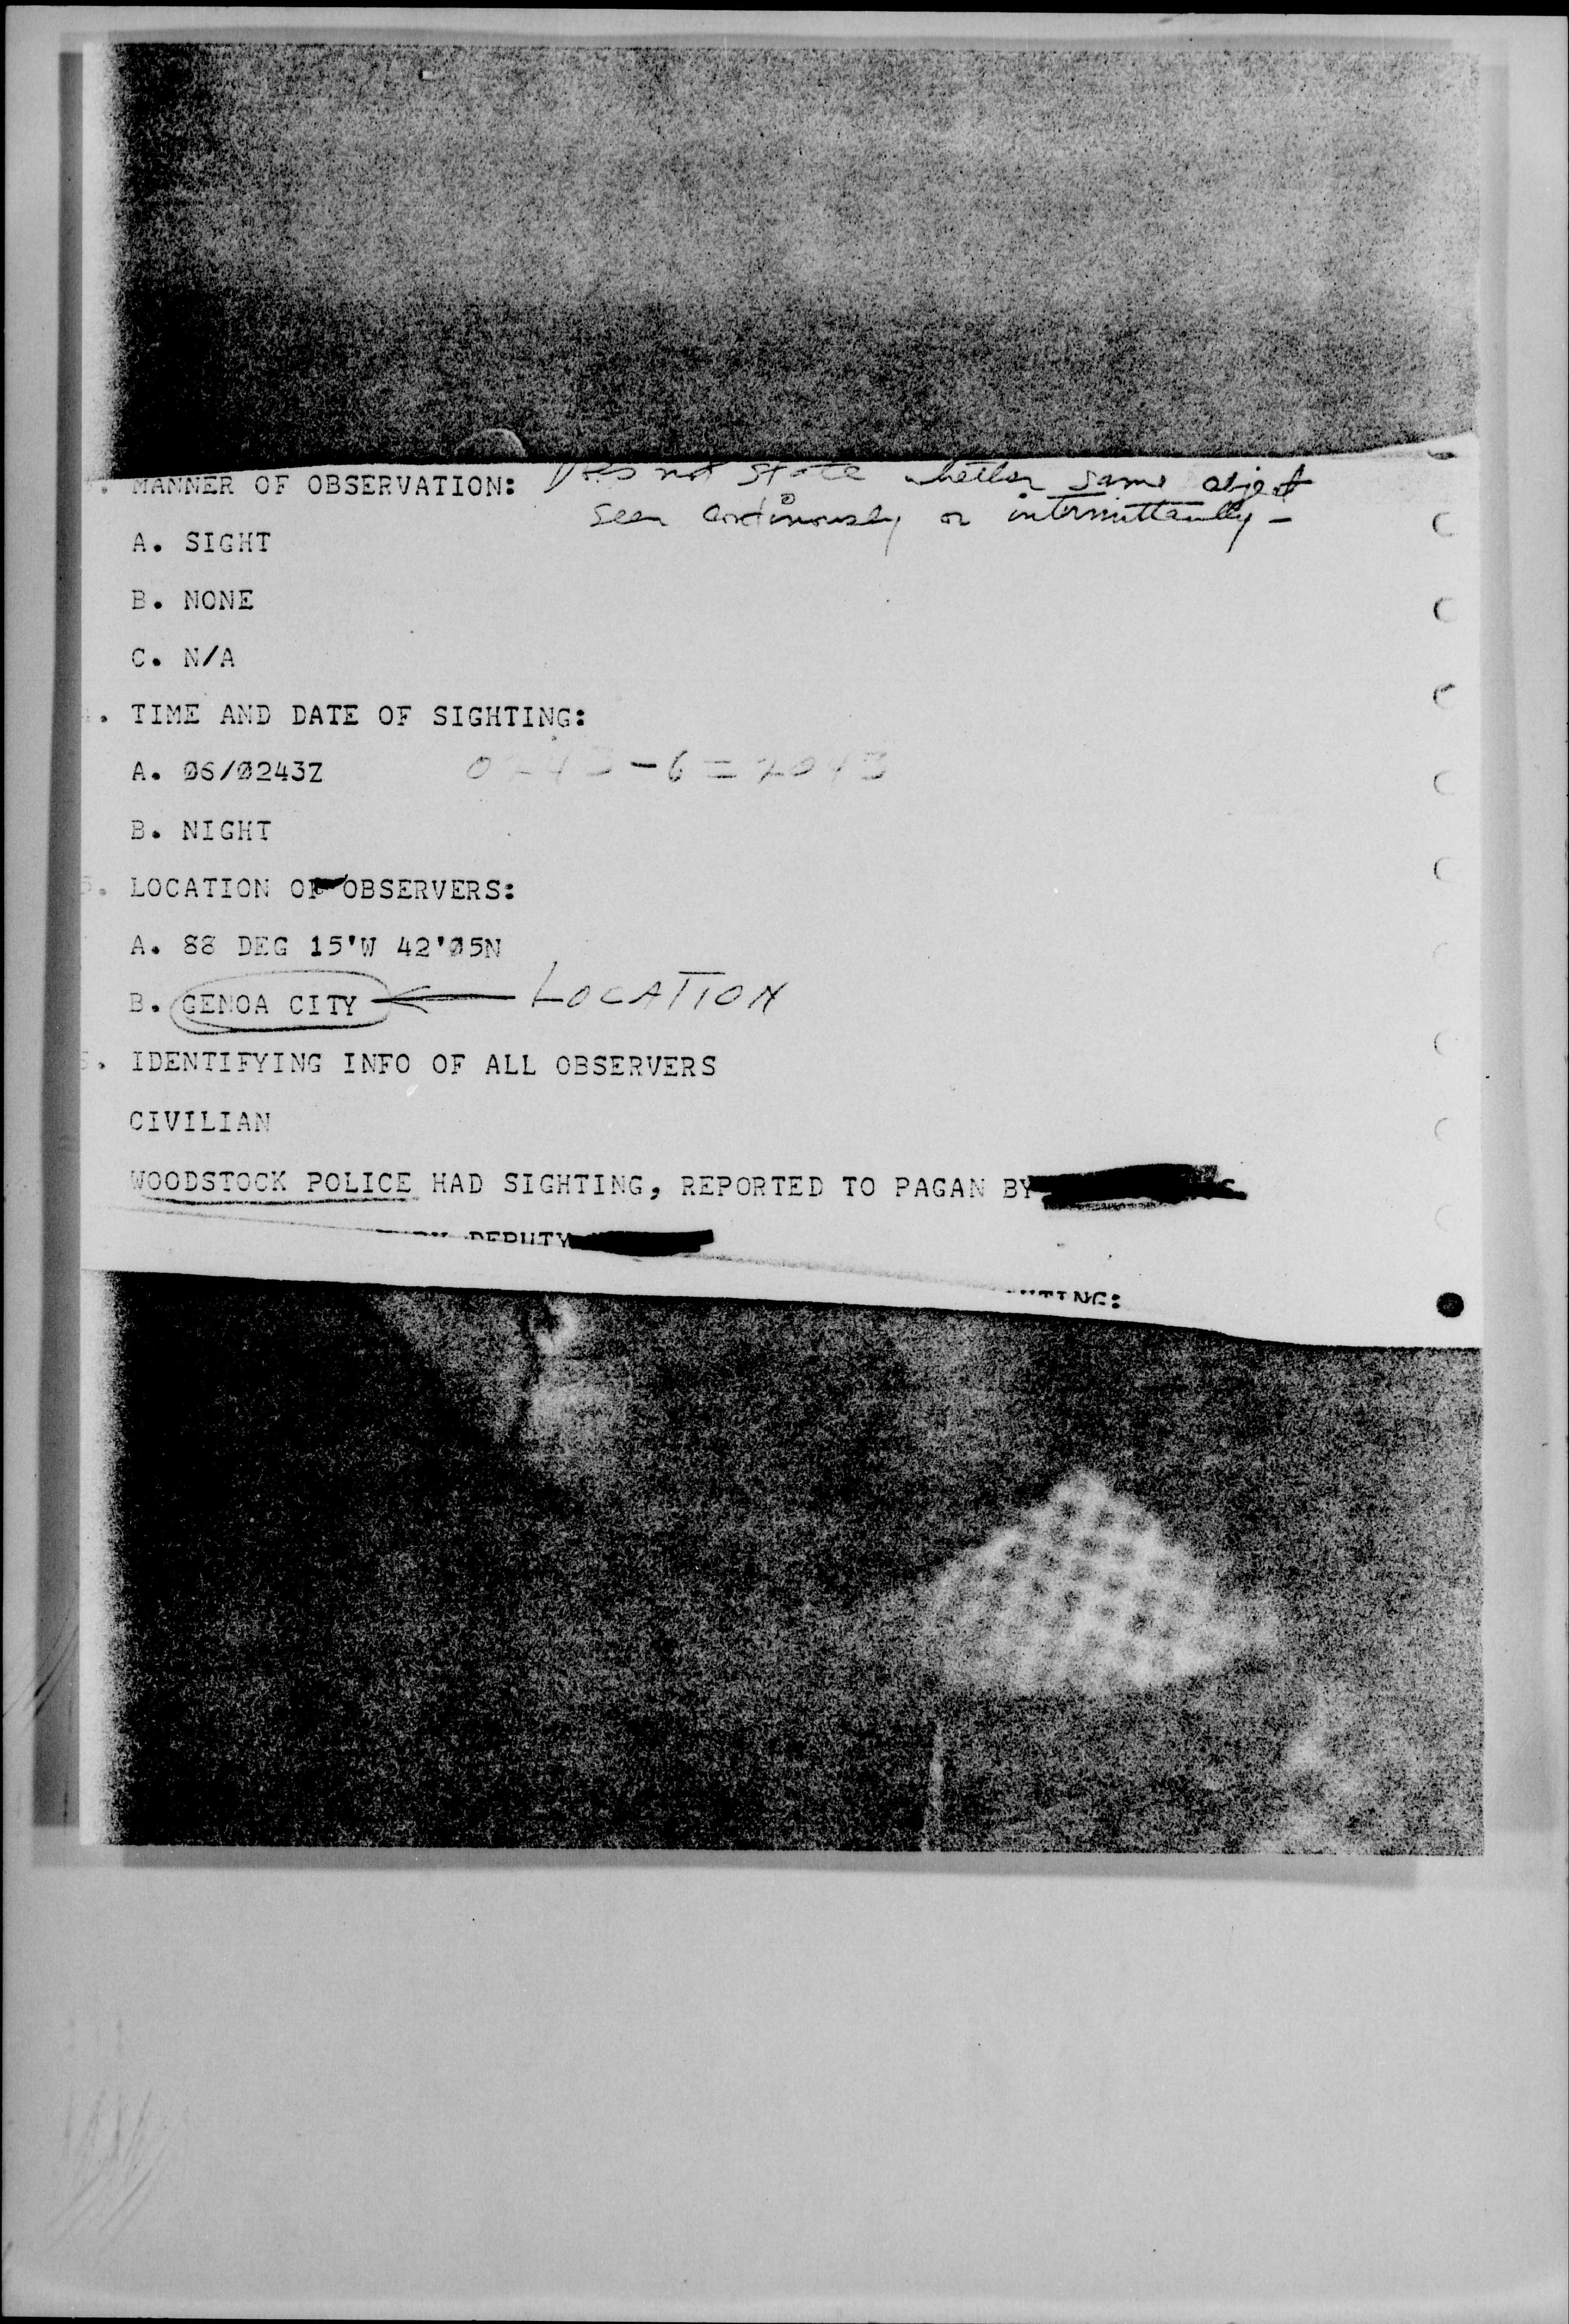 . MANNER OF OBSERVATION: Does not state whether same object
seen continously or intermittantly -
A. SIGHT
B. NONE
C. N/A
. TIME AND DATE OF SIGHTING:
A. Ø6/Ø243Z 0243 - 6 = 2043
B. NIGHT
5. LOCATION OF OBSERVERS:
A. 88 DEG 15'W 42'Ø5N
B. GENOA CITY ← LOCATION
. IDENTIFYING INFO OF ALL OBSERVERS
CIVILIAN
WOODSTOCK POLICE HAD SIGHTING, REPORTED TO PAGAN BY
DEPUTY